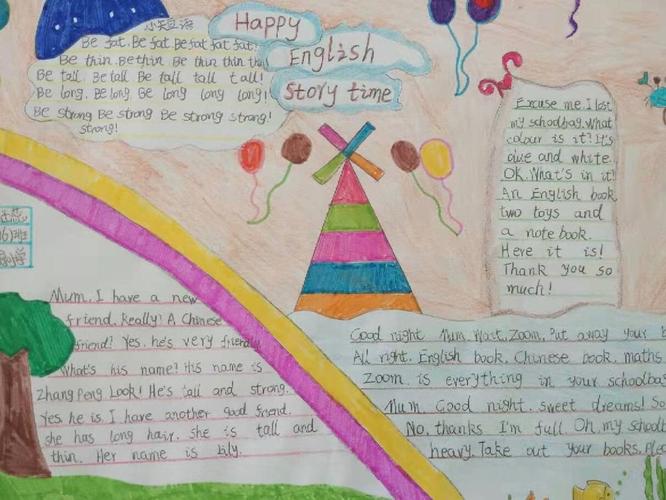 Happy
English
Story time
Be fat. Be fat Be fat fat fat!
Be thin. Be thin Be thin thin
Be tall. Be tall Be tall tall tall!
Be long. Be long Be long long long!
Be strong Be strong Be strong strong!
strong!
Excuse me I lost
my schoolbag. What
colour is it? It's
blue and white
OK. What's in it?
An English book
two toys and
a note book.
Here it is!
Thank you so
much!
Mum. I have a new
friend. Really? A Chinese
friend? Yes. he's very friendly
What's his name? His name is
Zhang Peng Look! He's tall and strong.
Yes, he is. I have another good friend.
she has long hair. She is tall and
thin. Her name is
Good night Mum. Wait. Zoom. Put away your
All right. English book. Chinese book. maths
Zoom. is everything in your schoolbag
Mum Good night. sweet dreams! So
No, thanks I'm full Oh, my
heavy. Take out your books.